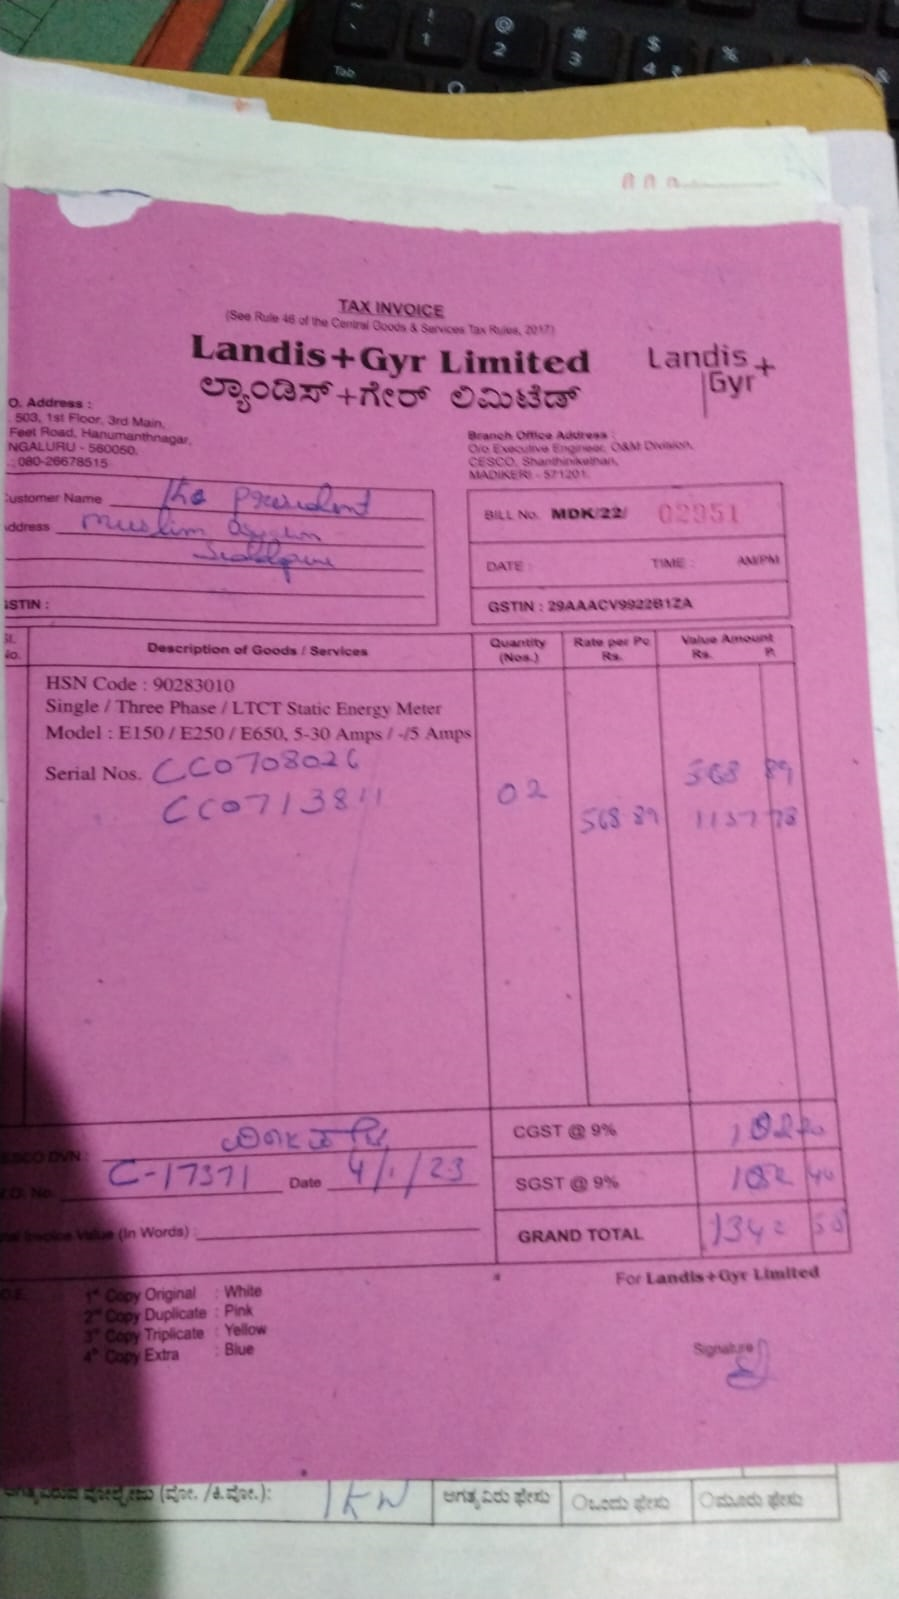 ~ ! @ # $ % ^ &
` 1 2 3 4 ₹
Tab
TAX INVOICE
(See Rule 46 of the Central Goods & Services Tax Rules, 2017)
Landis+Gyr Limited
ಲ್ಯಾಂಡಿಸ್+ಗೇರ್ ಲಿಮಿಟೆಡ್
Landis+
Gyr
O. Address :
503, 1st Floor, 3rd Main,
Feet Road, Hanumanthnagar,
NGALURU - 560050.
: 080-26678515
Branch Office Address :
O/o Executive Engineer, O&M Division,
CESCO, Shanthinikethan,
MADIKERI - 571201.
ustomer Name The President
ddress Muslim
GSTIN :
BILL No. MDK/22/ 02951
DATE : TIME : AM/PM
GSTIN : 29AAACV9922B1ZA
Sl. No. Description of Goods / Services Quantity (Nos.) Rate per Pc Rs. Value Amount Rs. P.
HSN Code : 90283010
Single / Three Phase / LTCT Static Energy Meter
Model : E150 / E250 / E650, 5-30 Amps / -/5 Amps
Serial Nos. CC0708026 568 89
CC0713811 02 568 89 1137 78
CGST @ 9%
SGST @ 9% 102 40
GRAND TOTAL 1342 58
ESCO DVN :
C-17371 Date 4/1/23
Invoice Value (In Words) :
For Landis+Gyr Limited
1st Copy Original : White
2nd Copy Duplicate : Pink
3rd Copy Triplicate : Yellow
4th Copy Extra : Blue
Signature
1KW